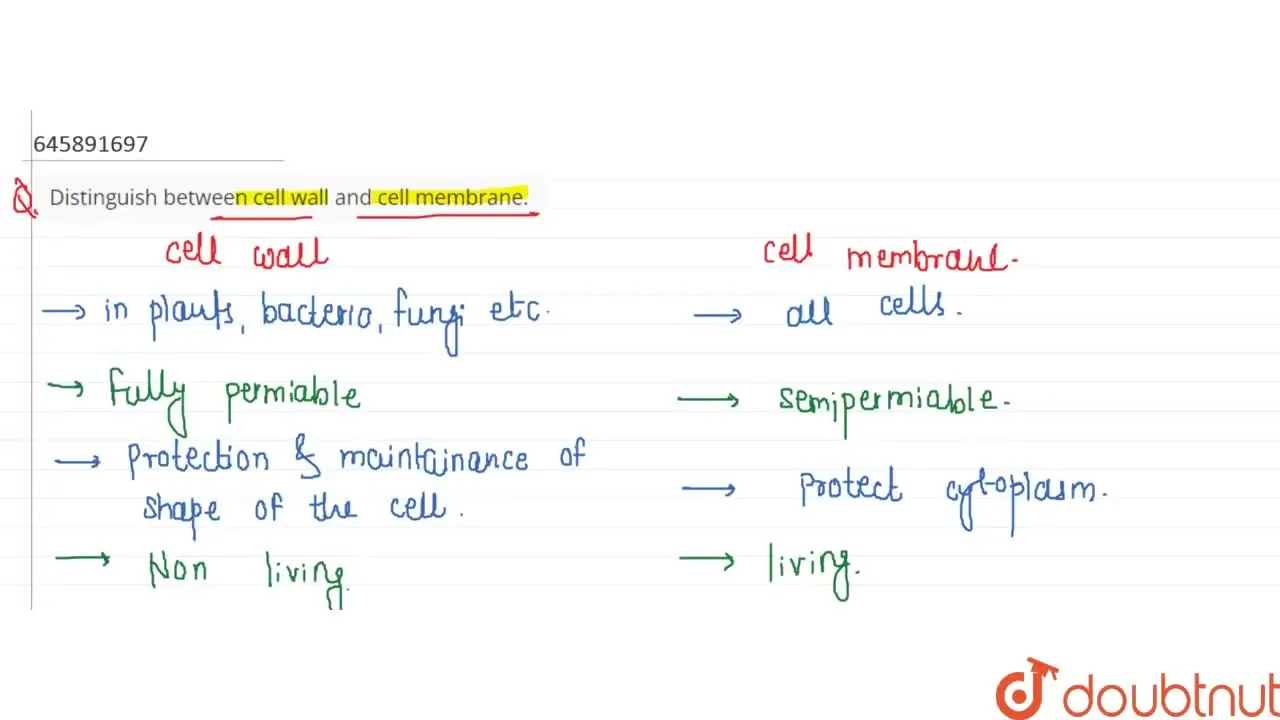 645891697
Q. Distinguish between cell wall and cell membrane.
cell wall
cell membrane.
→ in plants, bacteria, fungi etc.
→ all cells.
→ Fully permiable
→ semipermiable.
→ Protection & maintainance of
shape of the cell.
→ Protect cytoplasm.
→ Non living.
→ living.
doubtnut